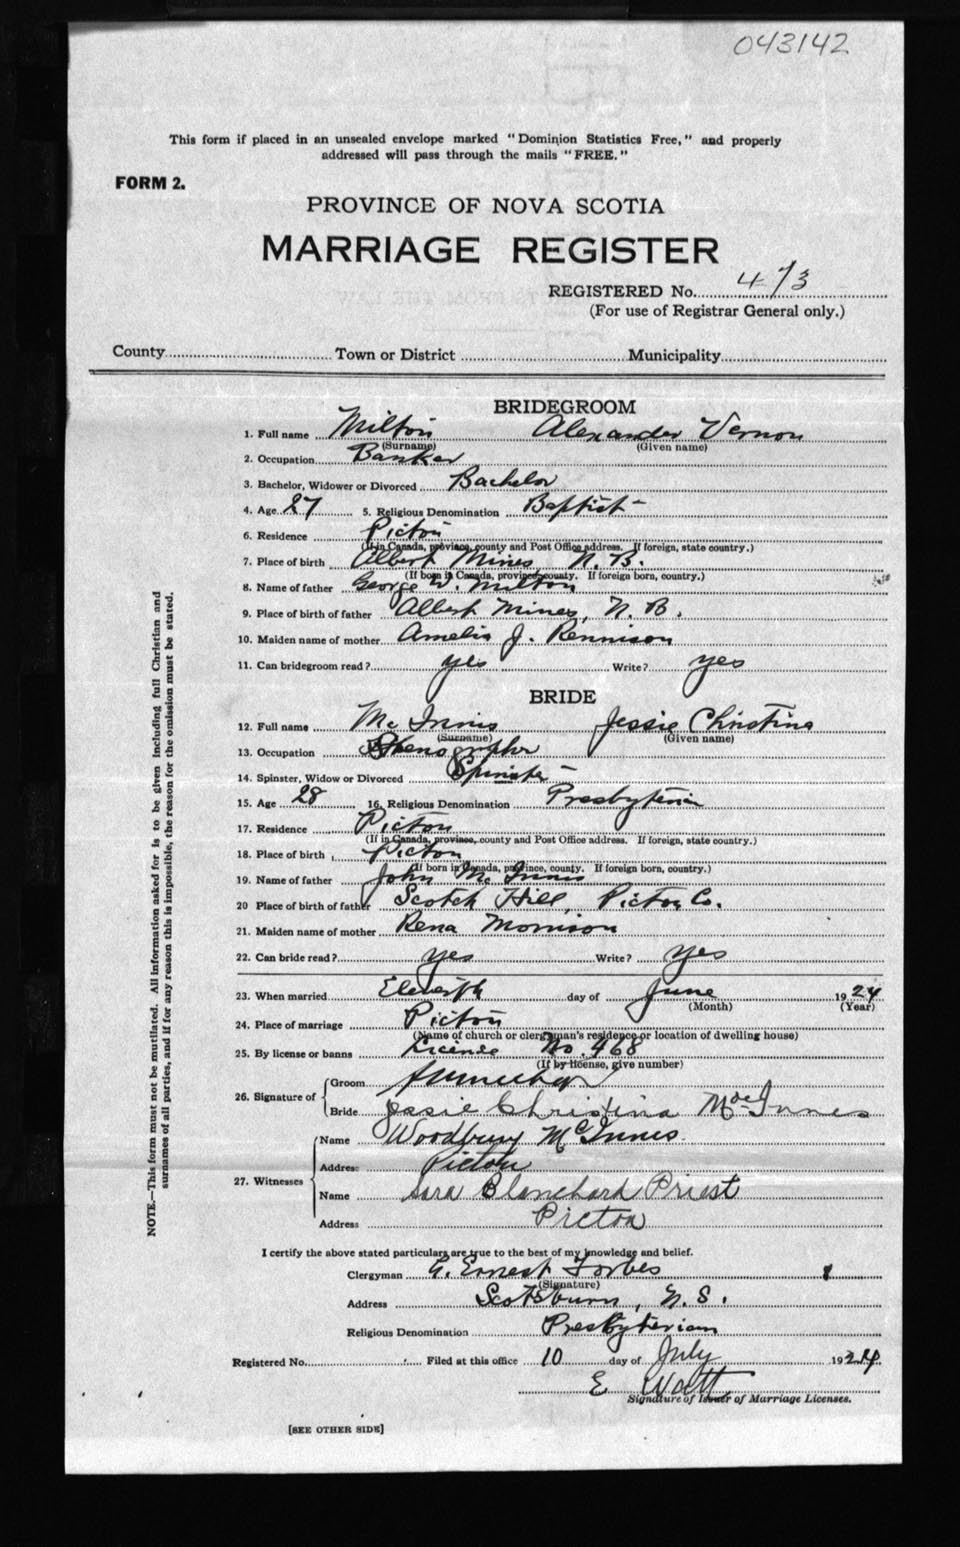 043142
This form if placed in an unsealed envelope marked "Dominion Statistics Free," and properly
addressed will pass through the mails "FREE."
FORM 2.
PROVINCE OF NOVA SCOTIA
MARRIAGE REGISTER
REGISTERED No. 473
(For use of Registrar General only.)
County Town or District Municipality
BRIDEGROOM
1. Full name Milton Alexander Vernon
(Surname) (Given name)
2. Occupation Banker
3. Bachelor, Widower or Divorced Bachelor
4. Age 27 5. Religious Denomination Baptist
6. Residence Pictou
(If in Canada, province, county and Post Office address. If foreign, state country.)
7. Place of birth Albert Mines N. B.
(If born in Canada, province, county. If foreign born, country.)
8. Name of father George W. Milton
9. Place of birth of father Albert Mines, N. B.
10. Maiden name of mother Amelia J. Rennison
11. Can bridegroom read? yes Write? yes
BRIDE
12. Full name Mc Innis Jessie Christina
(Surname) (Given name)
13. Occupation Stenographer
14. Spinster, Widow or Divorced Spinster
15. Age 28 16. Religious Denomination Presbyterian
17. Residence Pictou
(If in Canada, province, county and Post Office address. If foreign, state country.)
18. Place of birth Pictou
(If born in Canada, province, county. If foreign born, country.)
19. Name of father John Mc Innis
20 Place of birth of father Scotch Hill, Pictou Co.
21. Maiden name of mother Rena Morrison
22. Can bride read? yes Write? yes
23. When married Eleventh day of June 1924
(Month) (Year)
24. Place of marriage Pictou
(Name of church or clergyman's residence or location of dwelling house)
25. By license or banns License No. 468
(If by license, give number)
26. Signature of Groom
Bride Jessie Christina MacInnes
27. Witnesses Name Woodbury McInnes
Address Pictou
Name Sara Blanchard Priest
Address Pictou
I certify the above stated particulars are true to the best of my knowledge and belief.
Clergyman G. Ernest Forbes
(Signature)
Address Scotsburn, N. S.
Religious Denomination Presbyterian
Registered No. Filed at this office 10 day of July 1924
E Watt
Signature of Issuer of Marriage Licenses.
[SEE OTHER SIDE]
NOTE.—This form must not be mutilated. All information asked for is to be given including full Christian and
surnames of all parties, and if for any reason this is impossible, the reason for the omission must be stated.